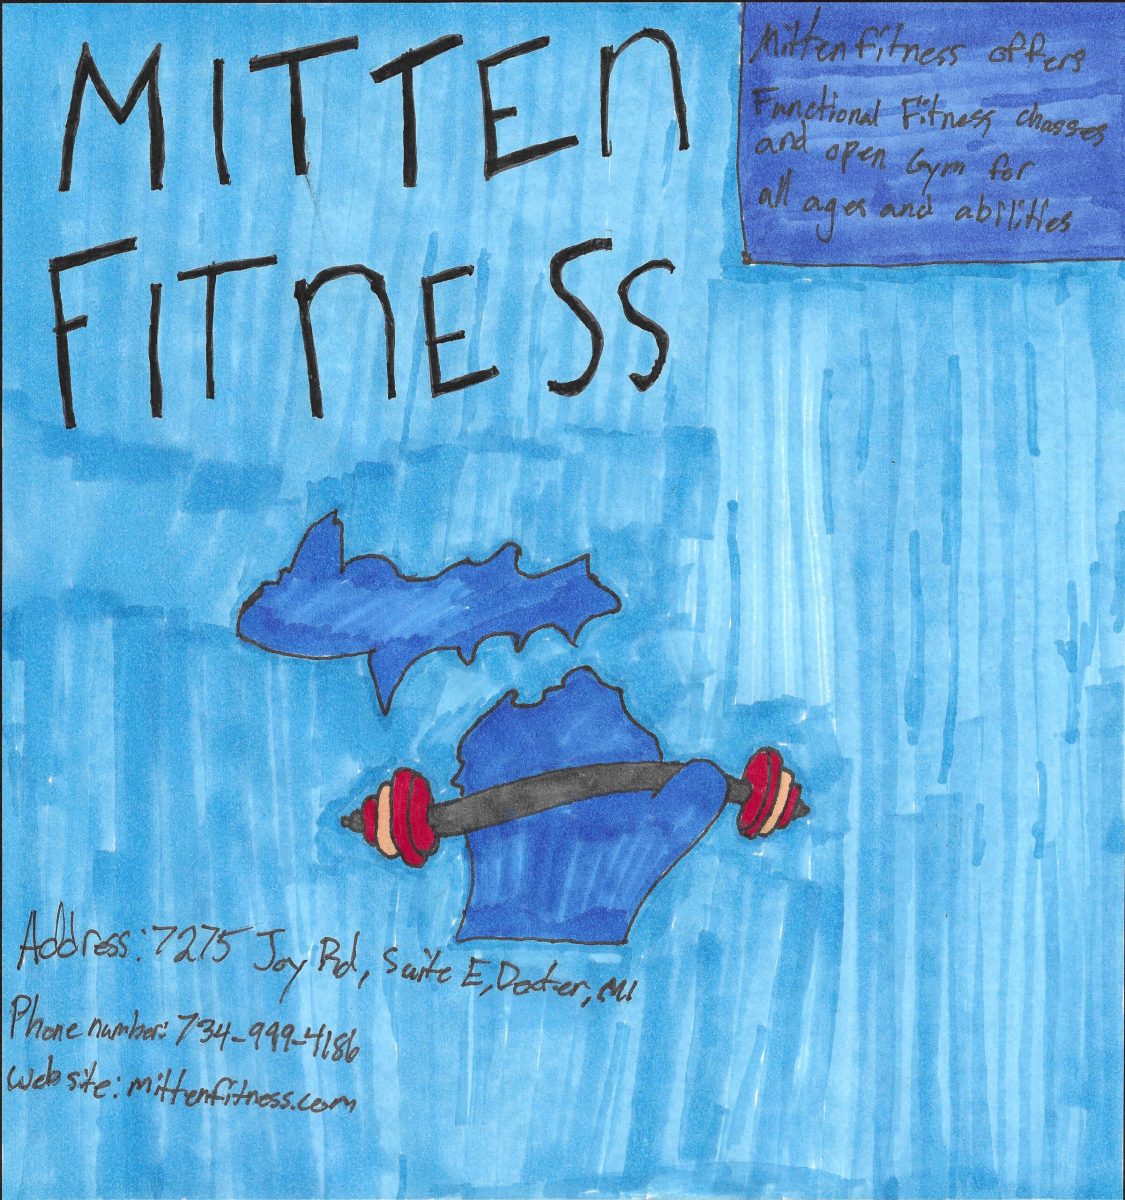 MITTEN
FITNESS
Mitten fitness offers
Functional Fitness chasses
and open Gym for
all ages and abilities
Address: 7275 Joy Rd, Suite E, Dexter, MI
Phone number: 734-999-4186
Website: mittenfitness.com